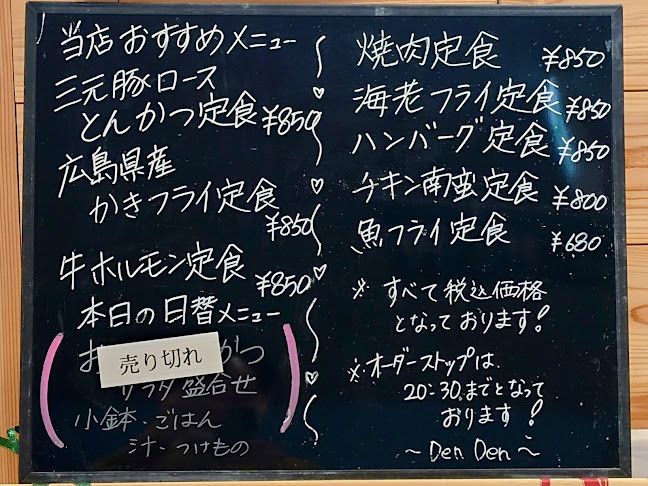 当店おすすめメニュー
三元豚ロース
とんかつ定食 ¥850
広島県産
かきフライ定食
¥850
牛ホルモン定食 ¥850
本日の日替メニュー
お
売り切れ
かつ
サラダ盛合せ
小鉢・ごはん
汁・つけもの
焼肉定食 ¥850
海老フライ定食 ¥850
ハンバーグ定食 ¥850
チキン南蛮定食 ¥800
魚フライ定食 ¥680
※ すべて税込価格
となっております!
※オーダーストップは、
20:30.までとなって
おります!
~Den Den~